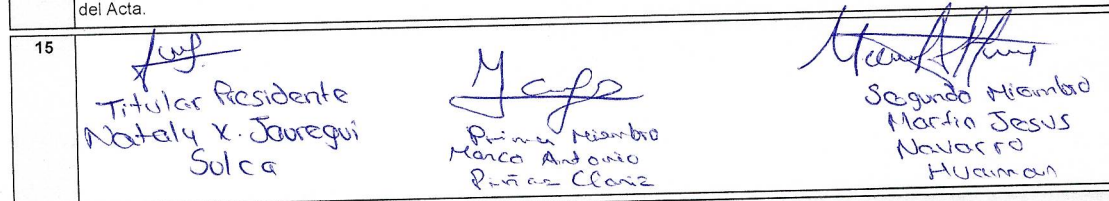 del Acta.
15
Titular Presidente
Nataly X. Jauregui
Sulca
Primer Miembro
Marco Antonio
Piñas
Segundo Miembro
Martin Jesus
Navarro
Huaman